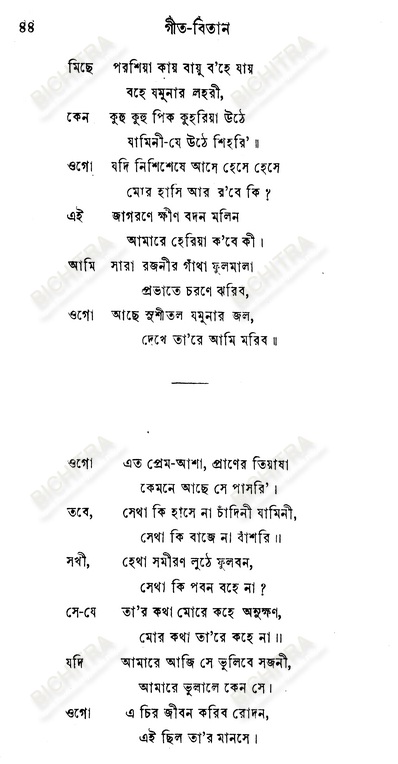 ৪৪ গীত-বিতান
মিছে পরশিয়া কায় বায়ু ব'হে যায়
বহে যমুনার লহরী,
কেন কুহু কুহু পিক কুহরিয়া উঠে
যামিনী-যে উঠে শিহরি' ॥
ওগো যদি নিশিশেষে আসে হেসে হেসে
মোর হাসি আর র'বে কি ?
এই জাগরণে ক্ষীণ বদন মলিন
আমারে হেরিয়া ক'বে কী ।
আমি সারা রজনীর গাঁথা ফুলমালা
প্রভাতে চরণে ঝরিব,
ওগো আছে সুশীতল যমুনার জল,
দেখে তা'রে আমি মরিব ॥
ওগো এত প্রেম-আশা, প্রাণের তিয়াষা
কেমনে আছে সে পাসরি' ।
তবে, সেথা কি হাসে না চাঁদিনী যামিনী,
সেথা কি বাজে না বাঁশরি ॥
সখী, হেথা সমীরণ লুঠে ফুলবন,
সেথা কি পবন বহে না ?
সে-যে তা'র কথা মোরে কহে অনুক্ষণ,
মোর কথা তা'রে কহে না ॥
যদি আমারে আজি সে ভুলিবে সজনী,
আমারে ভুলালে কেন সে ।
ওগো এ চির জীবন করিব রোদন,
এই ছিল তা'র মানসে ।
BICHITRA
BICHITRA
BICHITRA
BICHITRA
BICHITRA
BICHITRA
BICHITRA
BICHITRA